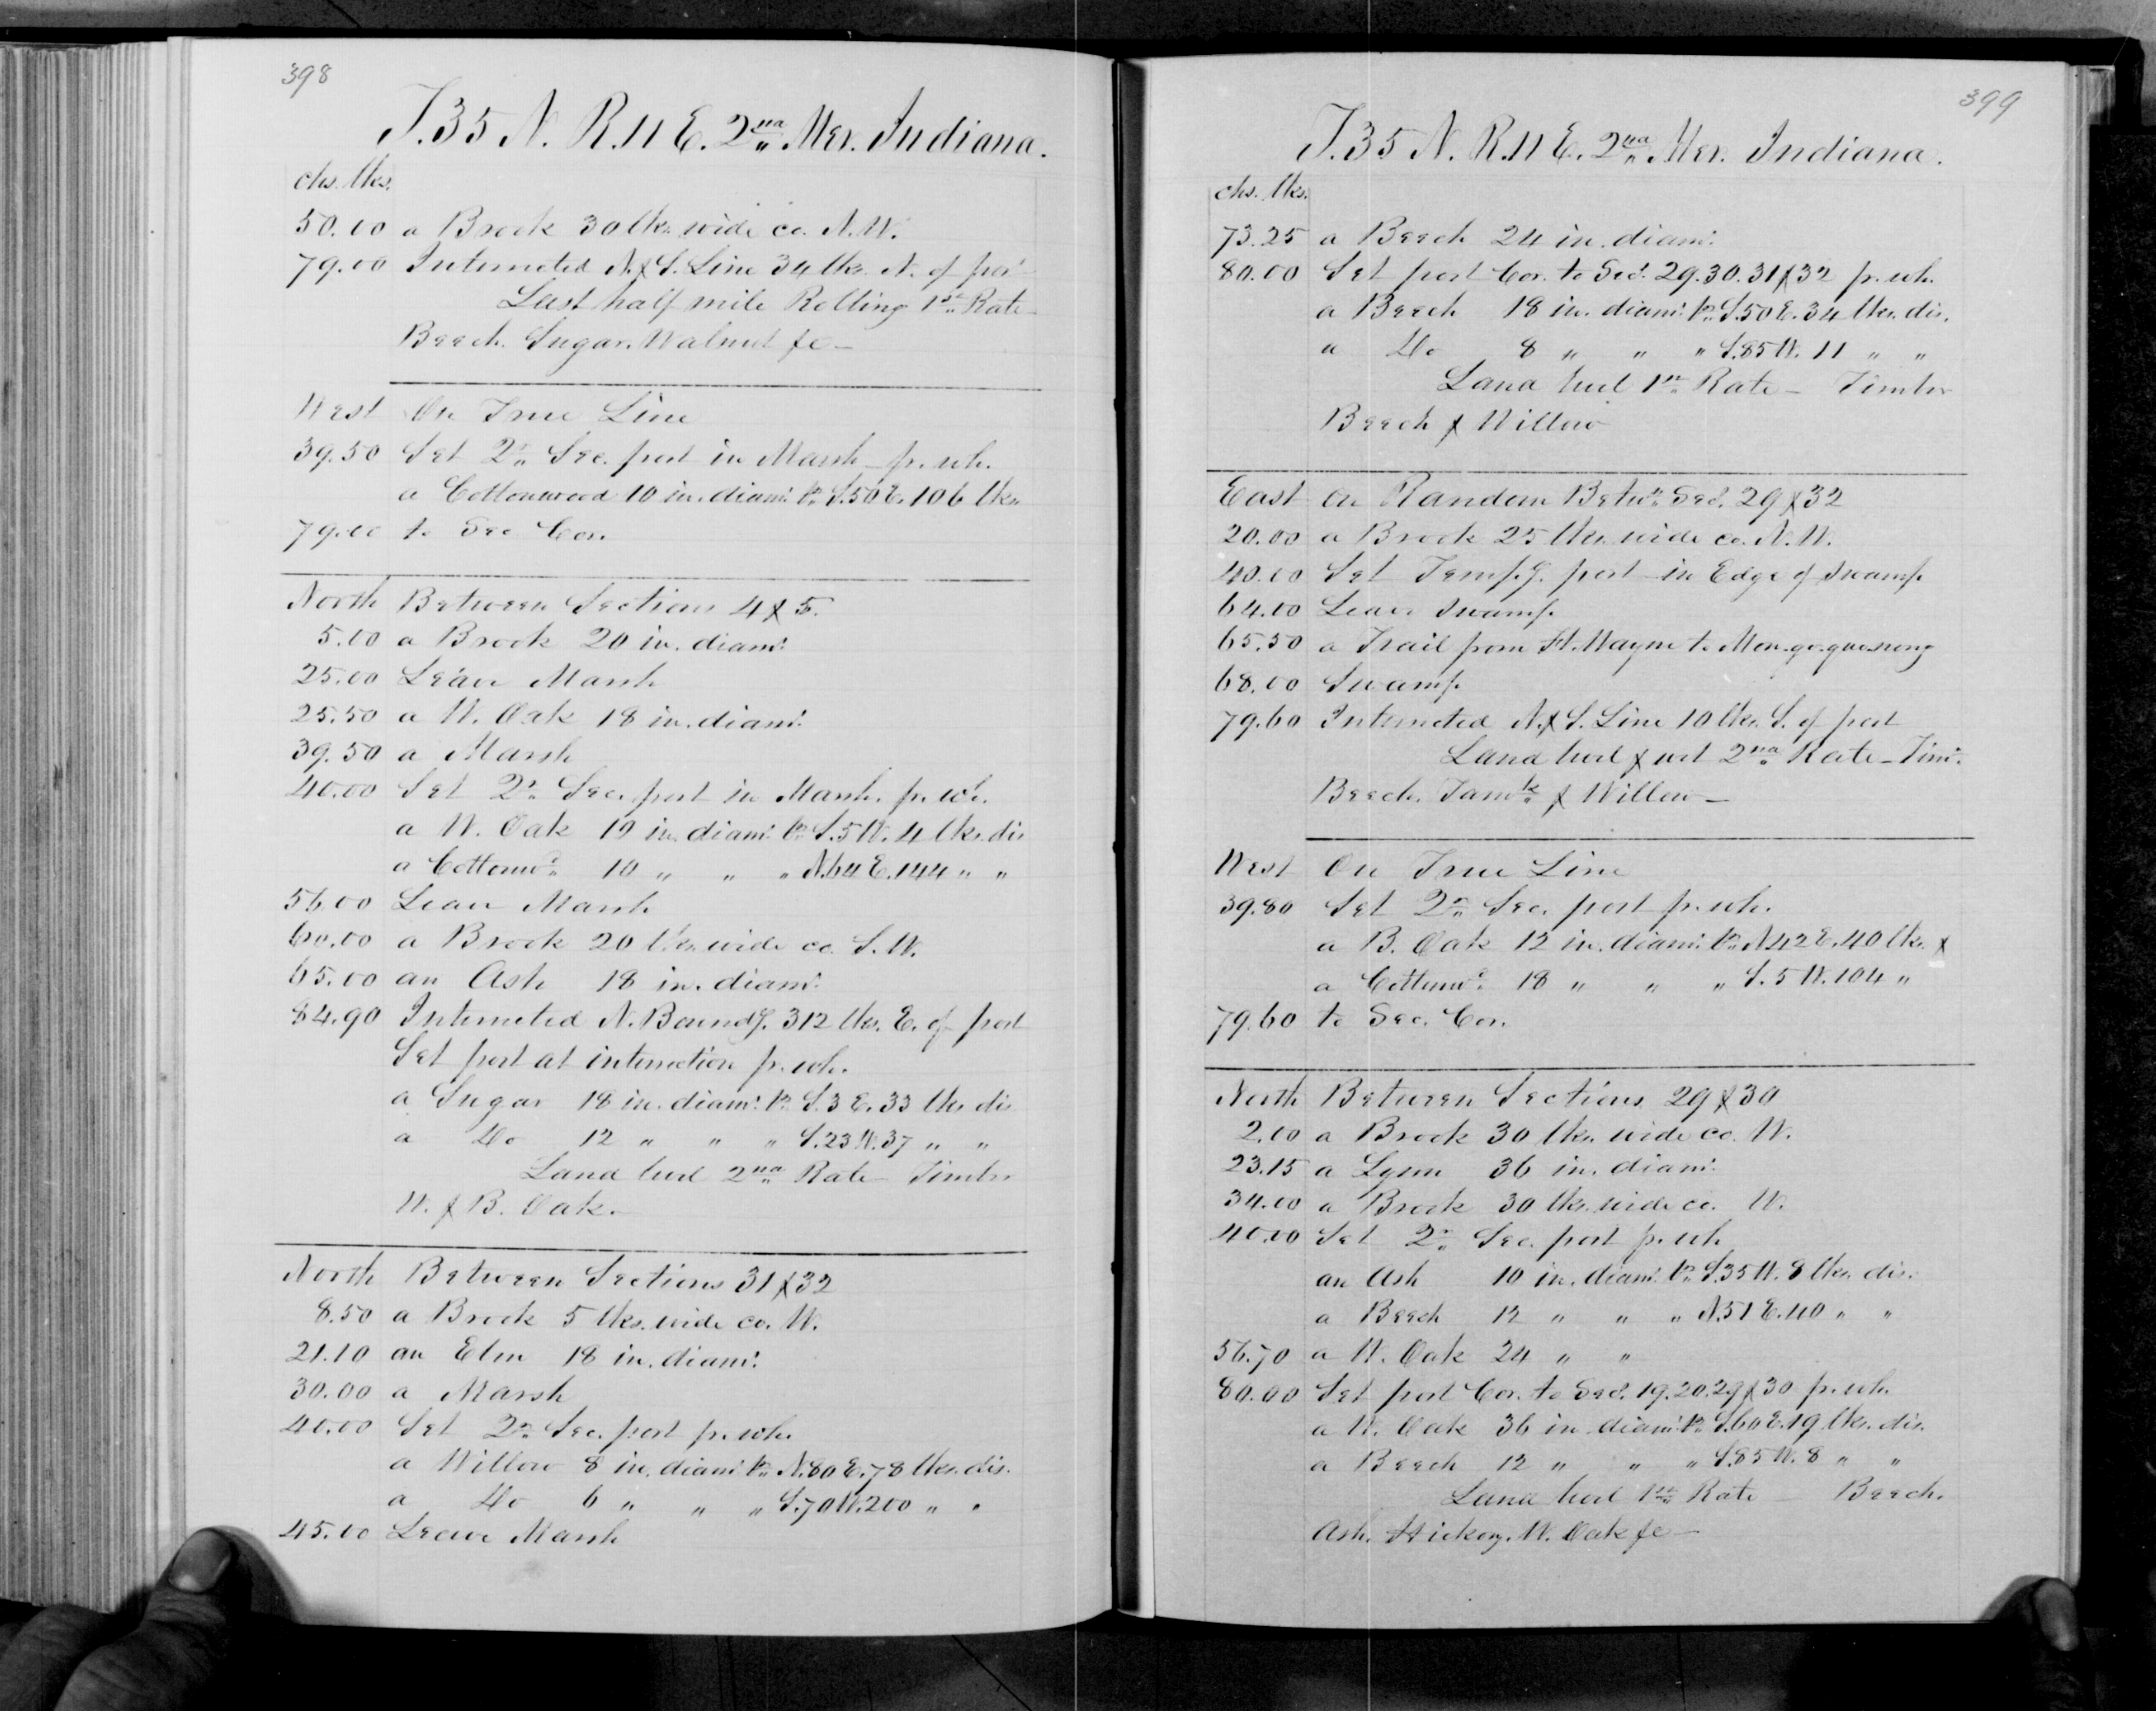 398
T. 35 N. R. 11 E. 2nd Mer. Indiana.
chs. lks.
50.00 a Brook 30 lks. wide co. N.W.
79.00 Intersected N. & S. Line 34 lks. N. of post
Last half mile Rolling 1st Rate
Beech. Sugar. Walnut &c —
West On True Line
39.50 Set 2r. Sec. post in Marsh pr. wh.
a Cottonwood 10 in. diamr. br. S. 50 E. 106 lks.
79.00 to Sec Cor.
North Between Sections 4 & 5.
5.00 a Brook 20 in. diamr.
25.00 Leave Marsh
25.50 a W. Oak 18 in. diamr.
39.50 a Marsh
40.00 Set 2r. Sec. post in Marsh. pr. wh.
a W. Oak 19 in. diamr. br. S. 5 W. 4 lks. dis
a Cottonwd. 10 " " " N. 64 E. 144 " "
56.00 Leave Marsh
60.00 a Brook 20 lks. wide co. S.W.
65.00 an Ash 18 in. diamr.
84.90 Intersected N. Boundy. 312 lks. E. of post
Set post at intersection pr. wh.
a Sugar 18 in. diamr. br. S. 3 E. 33 lks. dis
a Do 12 " " " S. 23 W. 37 " "
Land level 2nd Rate Timber
W. & B. Oak.
North Between Sections 31 & 32
8.50 a Brook 5 lks. wide co. W.
21.10 an Elm 18 in. diamr.
30.00 a Marsh
40.00 Set 2r. Sec. post pr. wh.
a Willow 8 in. diamr. br. N. 80 E. 78 lks. dis.
a Do 6 " " " S. 70 W. 200 " "
45.00 Leave Marsh
399
T. 35 N. R. 11 E. 2nd Mer. Indiana.
chs. lks.
73.25 a Beech 24 in. diamr.
80.00 Set post Cor. to Secs. 29. 30. 31 & 32 pr. wh.
a Beech 18 in. diamr. br. S. 50 E. 34 lks. dis.
a Do 8 " " " S. 85 W. 11 " "
Land level 1st Rate — Timber
Beech & Willow
East on Random Betwn. Secs. 29 & 32
20.00 a Brook 25 lks. wide co. N.W.
40.00 Set Tempy. post in Edge of Swamp
64.00 Leave Swamp
65.50 a Trail from Ft. Wayne to Mon.go.quenong
68.00 Swamp
79.60 Intersected N. & S. Line 10 lks. S. of post
Land level & wet 2nd Rate — Timr.
Beech. Tamk. & Willow —
West On True Line
39.80 Set 2r. Sec. post pr. wh.
a B. Oak 12 in. diamr. br. N. 42 E. 40 lks. &
a Cottonwd. 18 " " " S. 5 W. 104 "
79.60 to Sec. Cor.
North Between Sections 29 & 30
2.00 a Brook 30 lks. wide co. W.
23.15 a Lynn 36 in. diamr.
34.00 a Brook 30 lks. wide co. W.
40.00 Set 2r. Sec. post pr. wh
an Ash 10 in. diamr. br. S. 35 W. 8 lks. dis.
a Beech 12 " " " N. 51 E. 40 " "
56.70 a W. Oak 24 " "
80.00 Set post Cor. to Secs. 19. 20. 29 & 30 pr. wh.
a W. Oak 36 in diamr. br. S. 60 E. 19 lks. dis.
a Beech 12 " " " S. 85 W. 8 " "
Land level 1st Rate Beech.
Ash. Hickory. W. Oak &c —